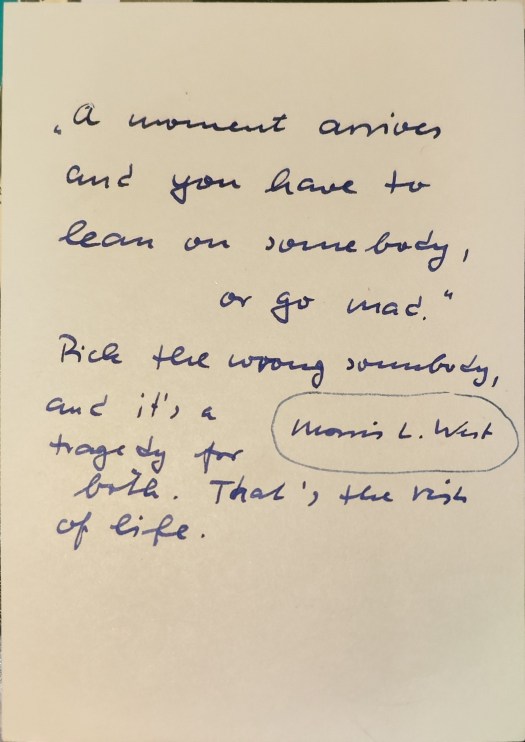 „A moment arrives
and you have to
lean on somebody,
or go mad.“
Pick the wrong somebody,
and it's a
Morris L. West
tragedy for
both. That's the risk
of life.